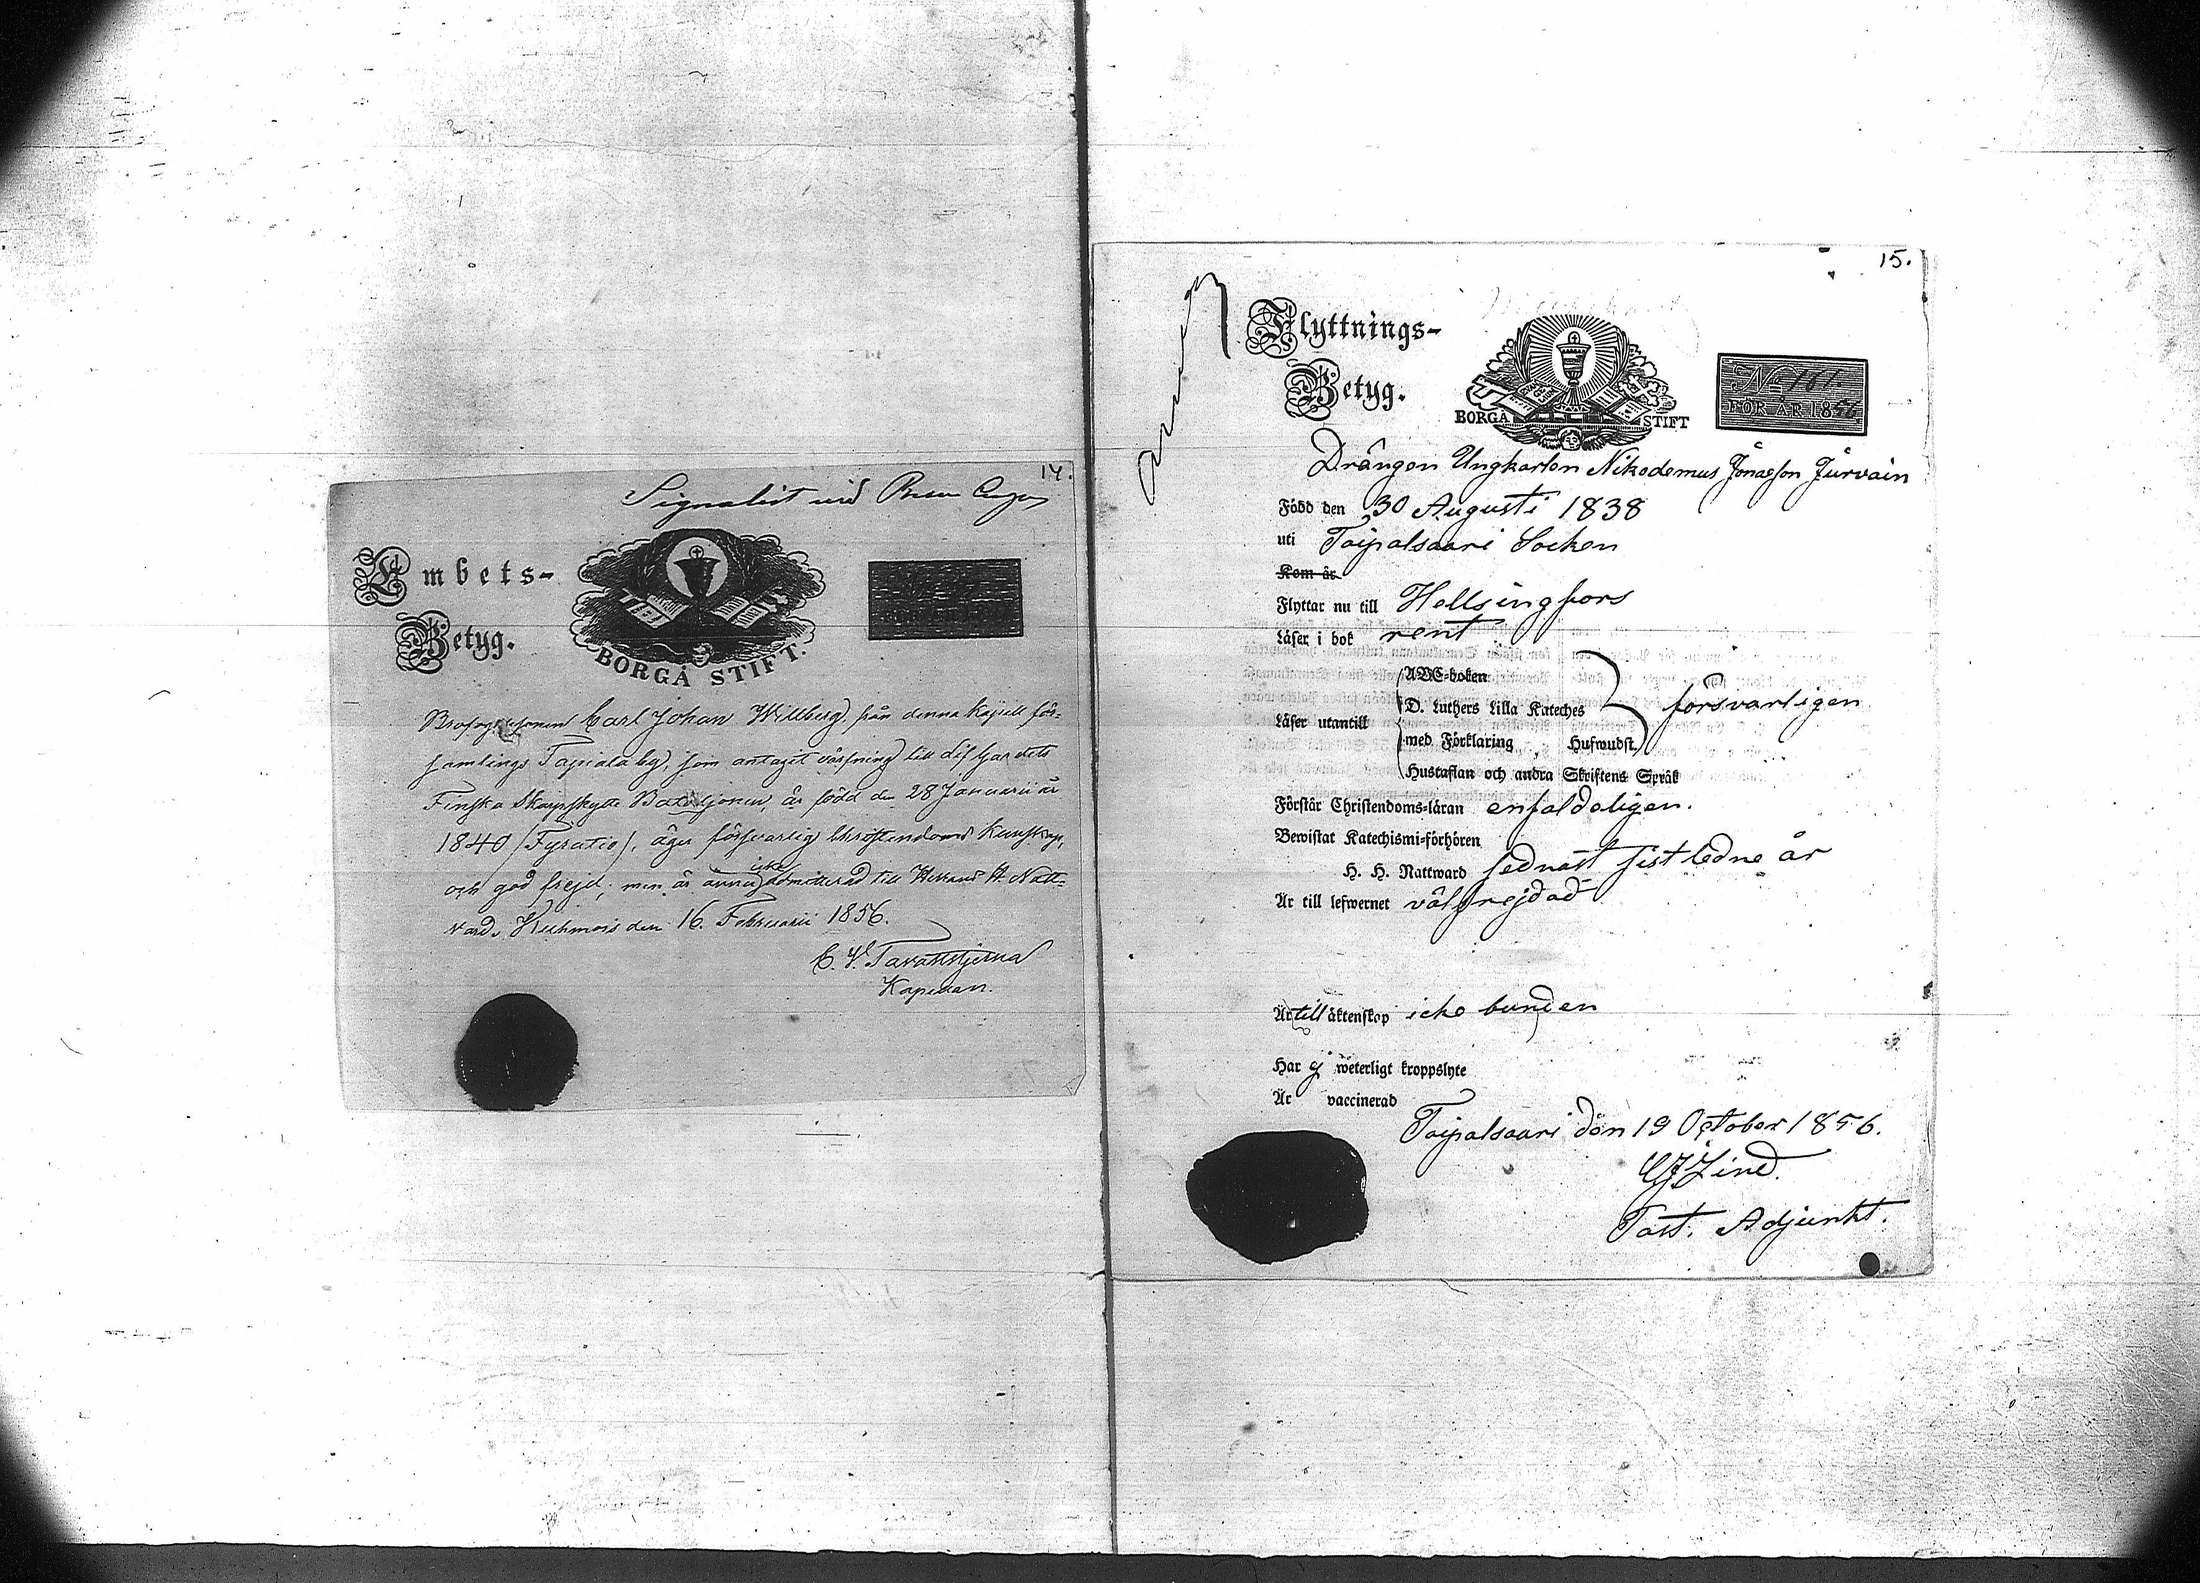 14.
Signalist vid
Embets-
Betyg.
BORGÅ STIFT.
Carl Johan Willberg, från denna Kapell för-
samlings Tapiala by, som antagit värfning till dess
Finska Skarpskytte Bataljonen, är född den 28 Januarii år
1840 /Fyratio/, äger försvarlig Christendoms kunskap,
och god frejd; men är ännu icke admitterad till Herrans H. Natt-
vard. Kuhmois den 16. Februarii 1856.
Kapellan.
15.
Flyttnings-
Betyg.
BORGÅ STIFT
No 161.
FÖR ÅR 1856
Drängen Ungkarlen Nikodemus Jönasson Jurvain
Född den 30 Augusti 1838
uti Taipalsaari Socken
Kom år
Flyttar nu till Hellsingfors
Läser i bok rent
Läser utantill
ABC-boken
D. Luthers Lilla Kateches
med Förklaring, Hufwudst.
Hustaflan och andra Skriftens Språk
försvarligen
Förstår Christendoms-läran enfaldeligen.
Bewistat Katechismi-förhören
H. H. Nattward sednast sistledne år
Är till lefwernet välfrejdad
Är till äktenskap icke bunden
Har ej weterligt kroppslyte
Är vaccinerad
Taipalsaari den 19 October 1856.
Past. Adjunkt.